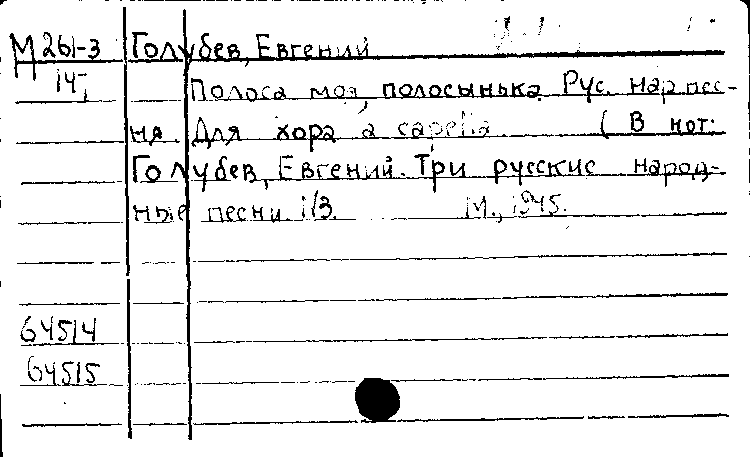 М 261-3 Голубев, Евгений
14,
Полоса моя, полосынька. Рус. нар. пес-
ня. Для хора a capella. ( В нот:
Голубев, Евгений. Три русские народ-
ные песни. 1/3. М., 1945.
64514
64515